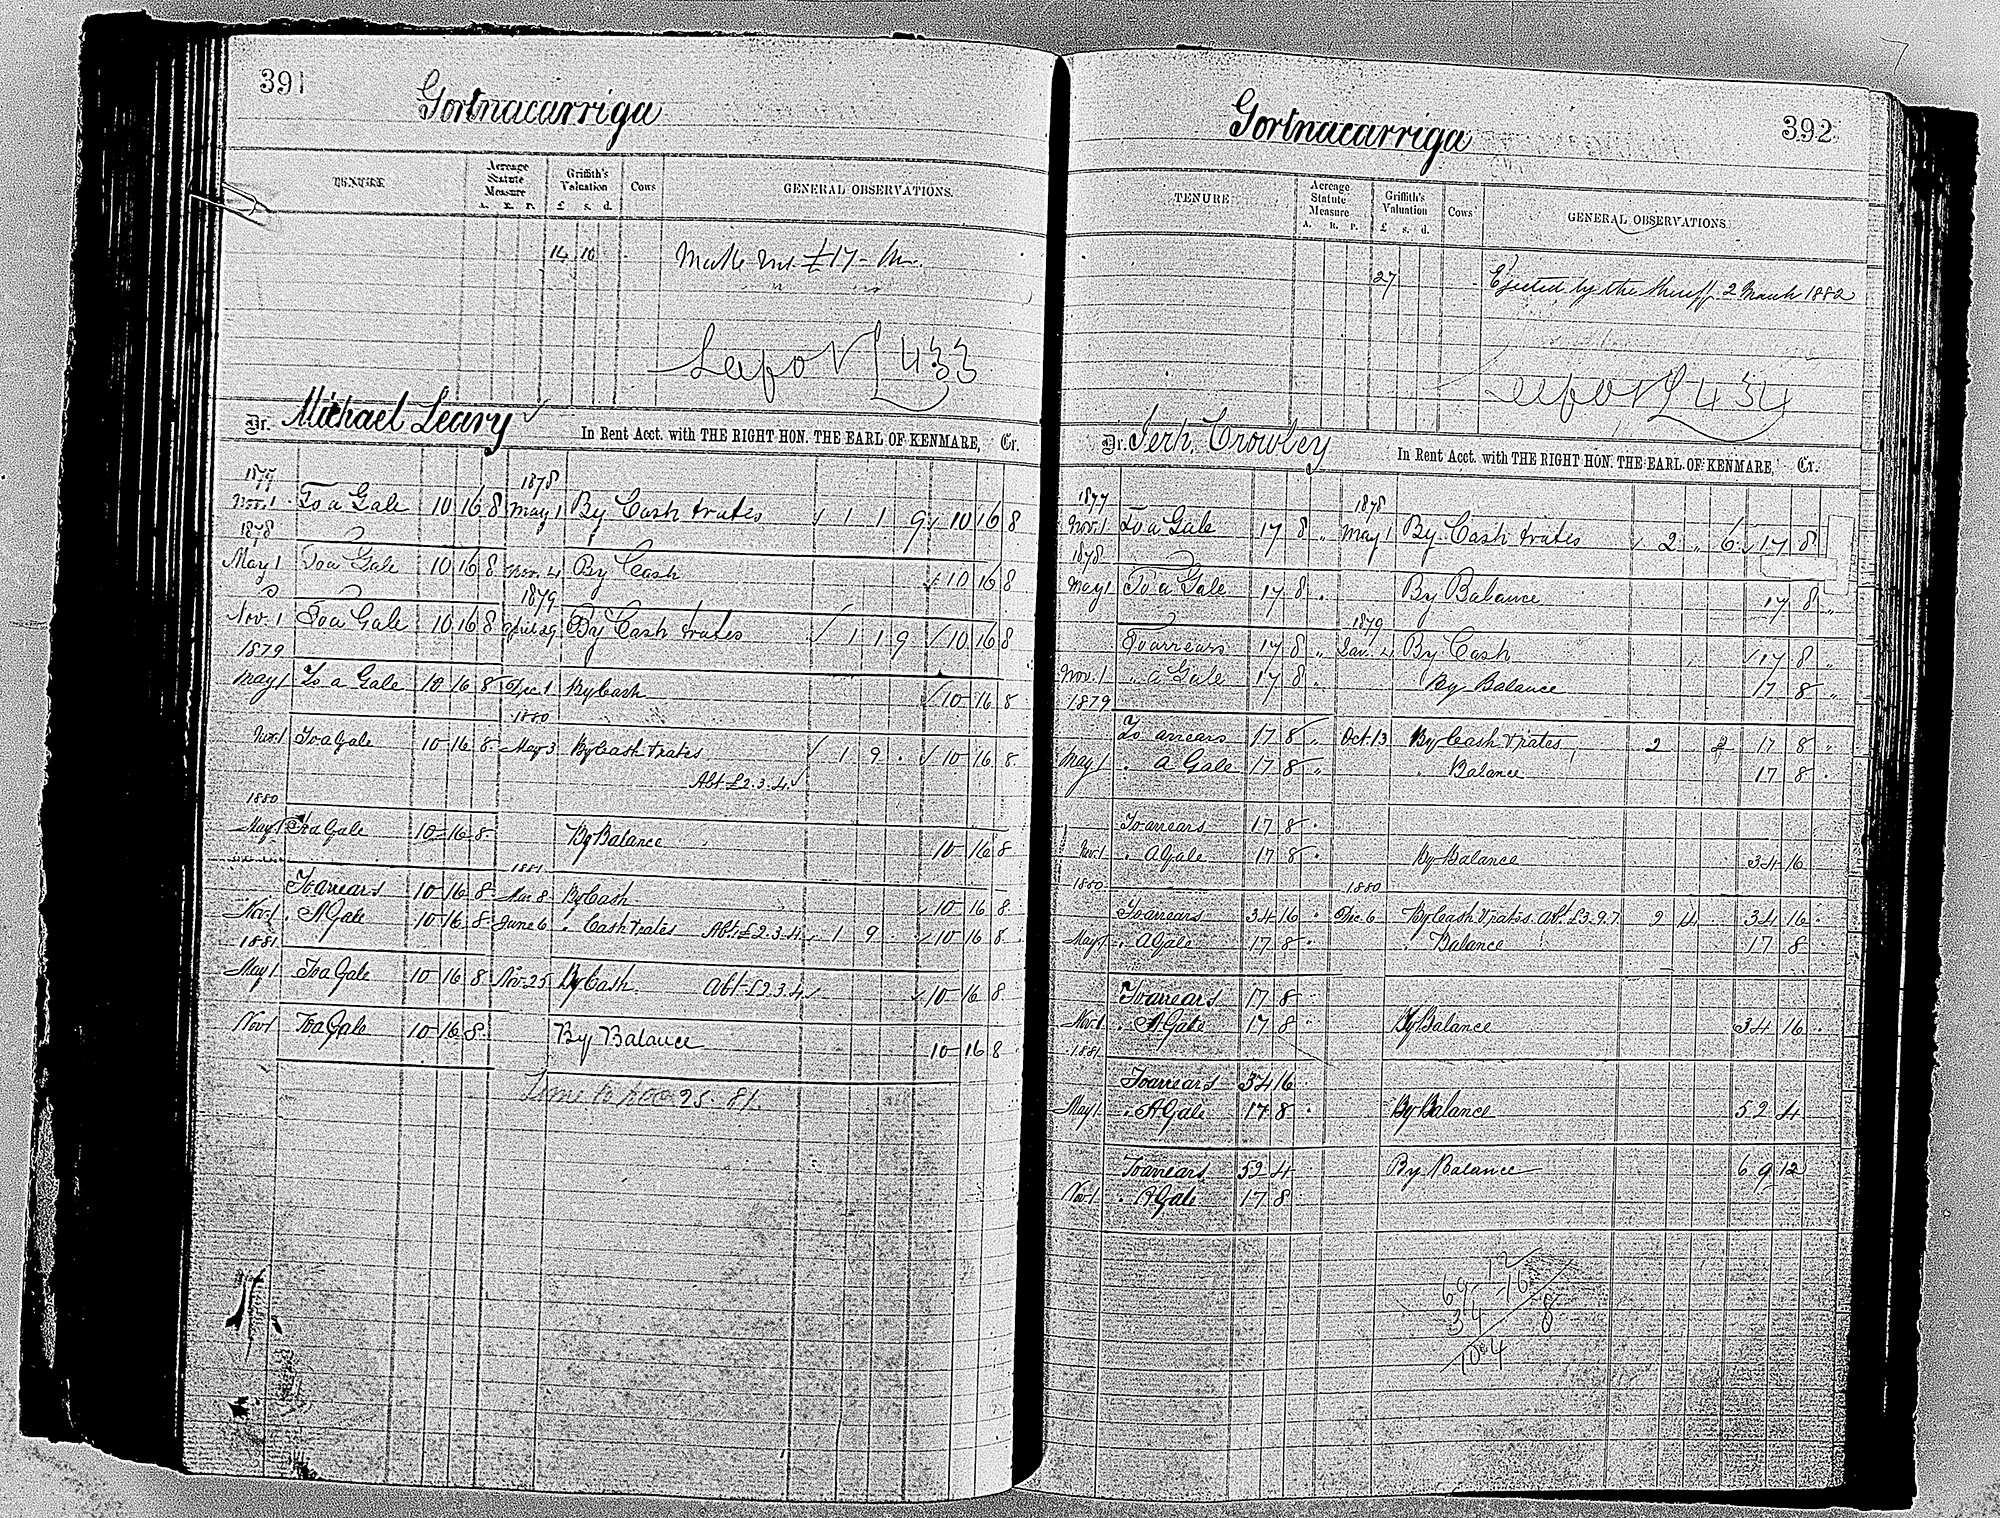 391
Gortnacarriga
TENURE
Acreage Statute Measure
A. R. P.
Griffith's Valuation
£ s. d.
Cows
GENERAL OBSERVATIONS.
14 10
£17
£433
Dr. Michael Leary In Rent Acct. with THE RIGHT HON. THE EARL OF KENMARE, Cr.
1877 1878
Nov. 1 To a Gale 10 16 8 May 1 By Cash & rates 1 1 9 10 16 8
1878
May 1 To a Gale 10 16 8 Nov. 4 By Cash 10 16 8
1879
Nov. 1 To a Gale 10 16 8 April 29 By Cash & rates 1 1 9 10 16 8
1879
May 1 To a Gale 10 16 8 Dec 1 By Cash 10 16 8
1880
Nov. 1 To a Gale 10 16 8 May 3 By Cash & rates 1 9 . 10 16 8
Abt £2.3.4
1880
May 1 To a Gale 10 16 8 By Balance 10 16 8
1881
To arrears 10 16 8 Mar 8 By Cash 10 16 8
Nov. 1 " A Gale 10 16 8 June 6 " Cash & rates Abt £2.3.4 1 9 . 10 16 8
1881
May 1 To a Gale 10 16 8 Nov. 25 By Cash Abt £2.3.4 10 16 8
Nov 1 To a Gale 10 16 8 By Balance 10 16 8
Time to 25 81.
392
Gortnacarriga
TENURE
Acreage Statute Measure
A. R. P.
Griffith's Valuation
£ s. d.
Cows
GENERAL OBSERVATIONS
27 Ejected by the Sheriff 2 March 1882
£434
Dr. Jerh. Crowley In Rent Acct. with THE RIGHT HON. THE EARL OF KENMARE, Cr.
1877 1878
Nov. 1 To a Gale 17 8 " May 1 By Cash & rates 2 " 6 17 8
1878
May 1 To a Gale 17 8 " By Balance 17 8 "
1879
To arrears 17 8 " Jan. 4 By Cash 17 8 "
Nov. 1 " a Gale 17 8 " By Balance 17 8 "
1879
To arrears 17 8 " Oct. 13 By Cash & rates 2 2 17 8 "
May 1 " a Gale 17 8 " " Balance 17 8 "
To arrears 17 8 "
Nov. 1 " A Gale 17 8 " By Balance 34 16
1880 1880
To arrears 34 16 " Dec. 6 By Cash & rates. Abt. £3.9.7 2 4 34 16 "
May 1 " A Gale 17 8 " " Balance 17 8 "
To arrears 17 8 "
Nov. 1 " A Gale 17 8 " By Balance 34 16 "
1881
To arrears 34 16
May 1 " A Gale 17 8 " By Balance 52 4
To arrears 52 4 By Balance 69 12
Nov. 1 " A Gale 17 8
69 12
34 16
8
104